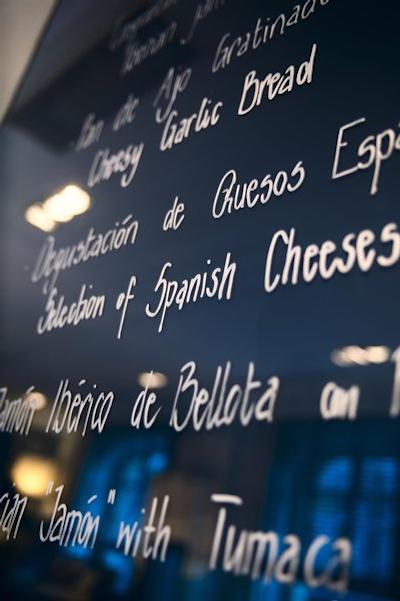 Iberian Jam
Pan de Ajo Gratinado
Cheesy Garlic Bread
Degustación de Quesos Espa
Selection of Spanish Cheeses
Jamón Ibérico de Bellota con
"Jamón" with Tumaca